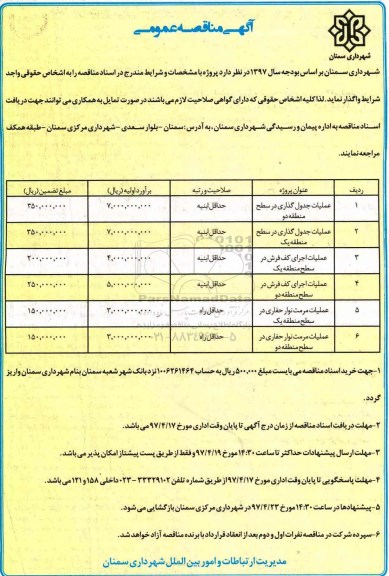 آگهی مناقصه عمومی
شهرداری سمنان
شهرداری سمنان بر اساس بودجه سال ۱۳۹۷ در نظر دارد پروژه با مشخصات و شرایط مندرج در اسناد مناقصه را به اشخاص حقوقی واجد
شرایط واگذار نماید. لذا کلیه اشخاص حقوقی که دارای گواهی صلاحیت لازم می باشند در صورت تمایل به همکاری می توانند جهت دریافت
اسناد مناقصه به اداره پیمان و رسیدگی شهرداری سمنان، به آدرس: سمنان - بلوار سعدی - شهرداری مرکزی سمنان - طبقه همکف
مراجعه نمایند.
ردیف عنوان پروژه صلاحیت و رتبه برآورد اولیه (ریال) مبلغ تضمین (ریال)
۱ عملیات جدول گذاری در سطح منطقه دو حداقل ابنیه ۷,۰۰۰,۰۰۰,۰۰۰ ۳۵۰,۰۰۰,۰۰۰
۲ عملیات جدول گذاری در سطح منطقه یک حداقل ابنیه ۷,۰۰۰,۰۰۰,۰۰۰ ۳۵۰,۰۰۰,۰۰۰
۳ عملیات اجرای کف فرش در سطح منطقه یک حداقل ابنیه ۴,۰۰۰,۰۰۰,۰۰۰ ۲۰۰,۰۰۰,۰۰۰
۴ عملیات اجرای کف فرش در سطح منطقه دو حداقل ابنیه ۵,۰۰۰,۰۰۰,۰۰۰ ۲۵۰,۰۰۰,۰۰۰
۵ عملیات مرمت نوار حفاری در سطح منطقه یک حداقل راه ۳,۰۰۰,۰۰۰,۰۰۰ ۱۵۰,۰۰۰,۰۰۰
۶ عملیات مرمت نوار حفاری در سطح منطقه دو حداقل راه ۳,۰۰۰,۰۰۰,۰۰۰ ۱۵۰,۰۰۰,۰۰۰
۱-جهت خرید اسناد مناقصه می بایست مبلغ ۵۰۰,۰۰۰ ریال به حساب ۱۰۰۶۲۶۱۴۶۴ نزد بانک شهر شعبه سمنان بنام شهرداری سمنان واریز
گردد.
۲-مهلت دریافت اسناد مناقصه از زمان درج آگهی تا پایان وقت اداری مورخ ۹۷/۴/۱۷ می باشد.
۳-مهلت ارسال پیشنهادات حداکثر تا ساعت ۱۴:۳۰ مورخ ۹۷/۴/۱۹ و فقط از طریق پست پیشتاز امکان پذیر می باشد.
۴-مهلت پاسخگویی تا پایان وقت اداری مورخ ۹۷/۴/۱۷ از طریق شماره تلفن ۳۳۳۲۹۱۰۲ - ۰۲۳ داخلی ۱۵۸ و ۱۲۱ می باشد.
۵-پیشنهادها در ساعت ۱۴:۳۰ مورخ ۹۷/۴/۲۳ در شهرداری مرکزی سمنان بازگشایی می شود.
۶-سپرده شرکت در مناقصه نفرات اول و دوم بعد از انعقاد قرارداد با برنده مناقصه آزاد خواهد شد.
مدیریت ارتباطات و امور بین الملل شهرداری سمنان